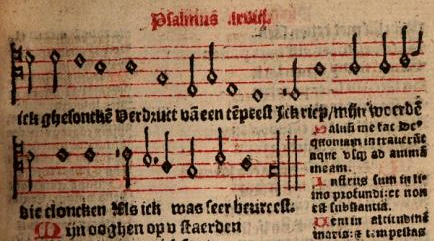 Psalmus lxviij.
ick ghesonckē Verdruct vā een tēpeest Ick riep/ mijn woerdē
Saluū me fac De⁹
quoniam intrauerūt
aque vsq̄ ad animā
meam.
Infixus sum in li⸗
mo profundi: et non
est substantia.
Veni in altitudinē
maris: et tempestas
die cloncken Als ick was seer beureest.
Mijn ooghen op v staerden